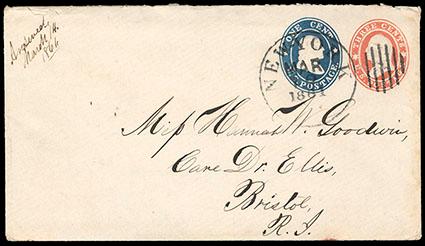 March 14.
1861
ONE CENT
POSTAGE
THREE CENTS
NEW-YORK
MAR
1861
Miss Hannah W. Goodwin,
Care Dr. Ellis,
Bristol,
R. I.